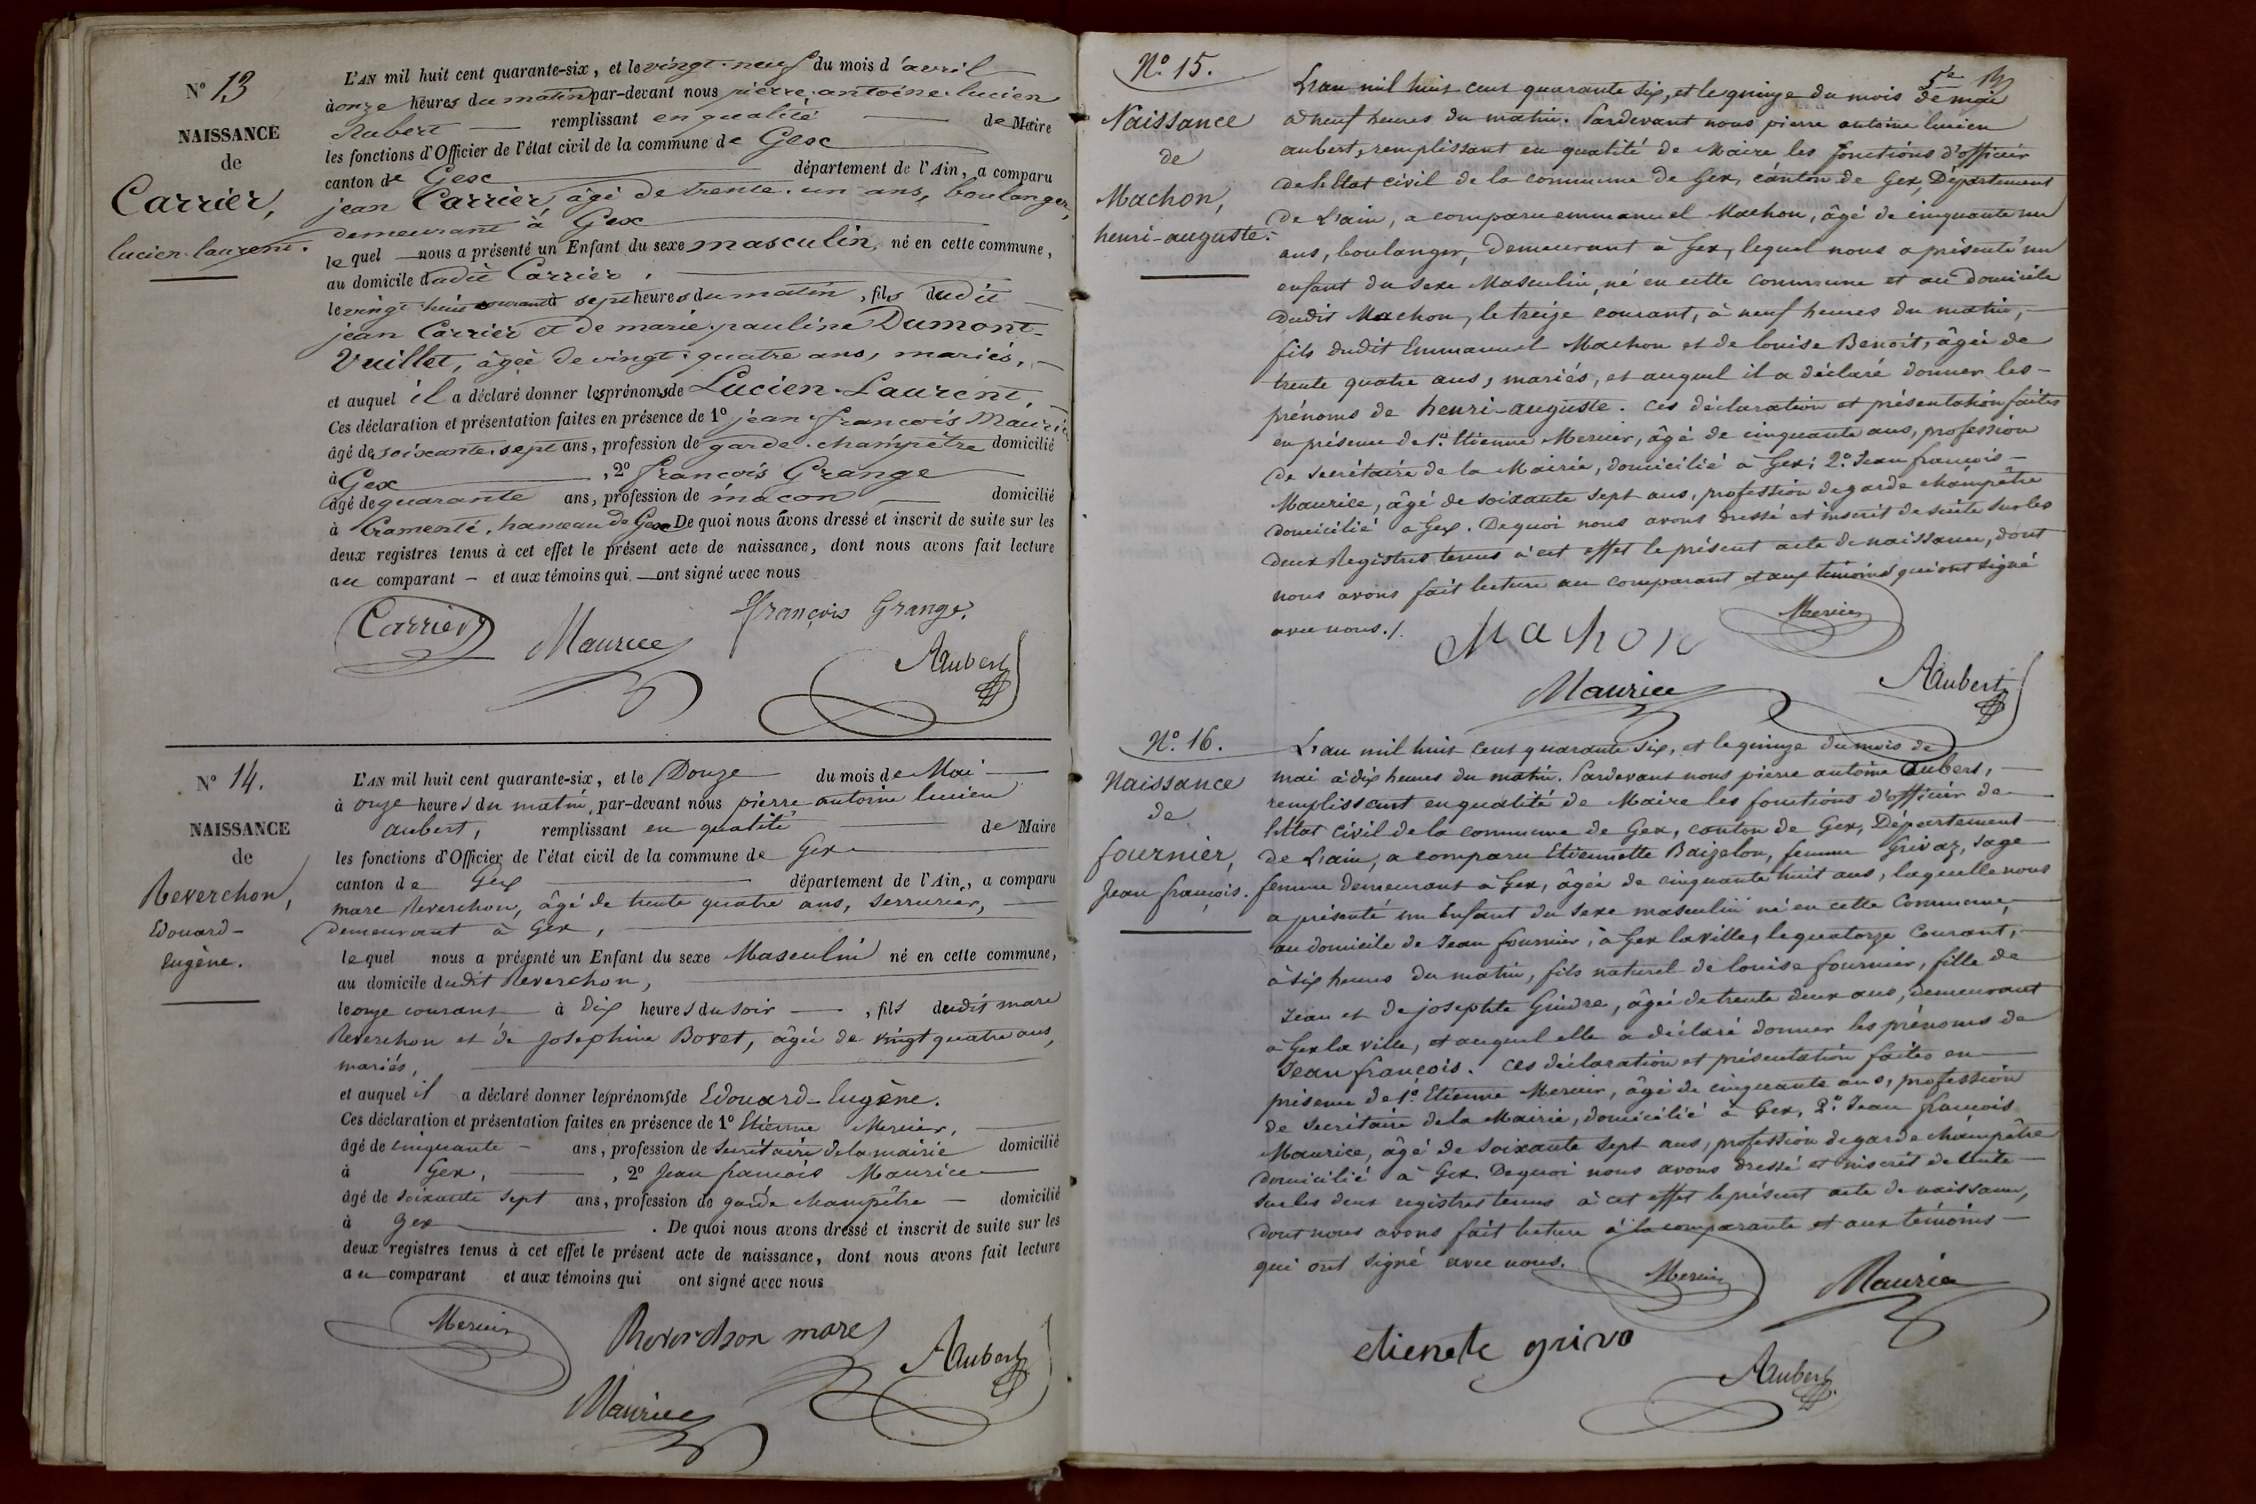 N° 13
NAISSANCE
de
Carrier,
lucien-laurent.
L'AN mil huit cent quarante-six, et le vingt-neuf du mois d'avril
à onze heures du matin par-devant nous pierre-antoine-lucien
Aubert remplissant en qualité de Maire
les fonctions d'Officier de l'état civil de la commune de Gex
canton de Gex département de l'Ain, a comparu
jean Carrier, âgé de trente-un ans, boulanger,
demeurant à Gex
lequel nous a présenté un Enfant du sexe masculin, né en cette commune,
au domicile dudit Carrier,
le vingt-huit courant à sept heures du matin, fils dudit
jean Carrier et de marie-pauline Dumont-
Vuillet, âgée de vingt-quatre ans, mariés,
et auquel il a déclaré donner les prénoms de Lucien-Laurent.
Ces déclaration et présentation faites en présence de 1° jean-françois Maurice
âgé de soixante-sept ans, profession de garde-champêtre domicilié
à Gex, 2° françois Grange
âgé de quarante ans, profession de maçon domicilié
à hameau de Gex De quoi nous avons dressé et inscrit de suite sur les
deux registres tenus à cet effet le présent acte de naissance, dont nous avons fait lecture
au comparant - et aux témoins qui ont signé avec nous
Carrier Maurice françois Grange.
Aubert
N° 14.
NAISSANCE
de
Reverchon,
Edouard-
Eugène.
L'AN mil huit cent quarante-six, et le Douze du mois de Mai
à onze heures du matin, par-devant nous pierre antoine lucien
aubert, remplissant en qualité de Maire
les fonctions d'Officier de l'état civil de la commune de Gex
canton de Gex département de l'Ain, a comparu
marc Reverchon, âgé de trente quatre ans, serrurier,
demeurant à Gex,
lequel nous a présenté un Enfant du sexe Masculin né en cette commune,
au domicile dudit Reverchon,
le onze courant à Dix heures du soir, fils dudit marc
Reverchon et de Josephine Bovet, âgée de vingt quatre ans,
mariés,
et auquel il a déclaré donner les prénoms de Edouard-Eugène.
Ces déclaration et présentation faites en présence de 1° Etienne Mercier,
âgé de cinquante - ans, profession de secrétaire de la mairie domicilié
à Gex, 2° Jean francois Maurice
âgé de soixante sept ans, profession de garde champêtre - domicilié
à Gex. De quoi nous avons dressé et inscrit de suite sur les
deux registres tenus à cet effet le présent acte de naissance, dont nous avons fait lecture
au comparant et aux témoins qui ont signé avec nous
Mercier Reverchon marc Aubert
Maurice
5e
N° 15.
Naissance
de
Machon,
henri-auguste.
L'an mil huit cent quarante six, et le quinze du mois de mai
à neuf heures du matin. Pardevant nous pierre antoine lucien
aubert, remplissant en qualité de Maire les fonctions d'officier
de l'Etat civil de la commune de Gex, canton de Gex, Département
de L'ain, a comparu emmanuel Machon, âgé de cinquante un
ans, boulanger, Demeurant à Gex, lequel nous a présenté un
enfant du sexe Masculin, né en cette commune et au domicile
dudit Machon, le treize courant, à neuf heures du matin,
fils dudit Emmanuel Machon et de louise Benoit, âgée de
trente quatre ans, mariés, et auquel il a déclaré donner les-
prénoms de henri-auguste. Ces déclaration et présentation faites
en présence de 1° Etienne Mercier, âgé de cinquante ans, profession
de secrétaire de la Mairie, domicilié à Gex; 2° Jean francois-
Maurice, âgé de soixante sept ans, profession de garde champêtre
domicilié à Gex. De quoi nous avons dressé et inscrit de suite sur les
deux Registres tenus à cet effet le présent acte de naissance, dont
nous avons fait lecture au comparant et aux témoins qui ont signé
avec nous./.
Machon Mercier
Maurice Aubert
N° 16.
Naissance
de
fournier,
Jean françois.
L'an mil huit cent quarante six, et le quinze du mois de
mai à dix heures du matin. Pardevant nous pierre antoine Aubert,
remplissant en qualité de Maire les fonctions d'officier de
l'Etat civil de la commune de Gex, canton de Gex, Département
de L'ain, a comparu Etiennette Baizelon, femme Grivaz, sage
femme demeurant à Gex, âgée de cinquante huit ans, laquelle nous
a présenté un Enfant du sexe masculin né en cette Commune,
au domicile de Jean fournier, à Gex la ville, le quatorze Courant,
à six heures du matin, fils naturel de louise fournier, fille de
Jean et de josephte Gindre, âgée de trente deux ans, demeurant
à Gex la ville, et auquel elle a déclaré donner les prénoms de
Jean francois. Ces déclaration et présentation faites en
présence de 1° Etienne Mercier, âgé de cinquante ans, profession
de secrétaire de la Mairie, domicilié à Gex, 2° Jean francois
Maurice, âgé de soixante sept ans, profession de garde champêtre
domicilié à Gex. De quoi nous avons dressé et inscrit de suite
sur les deux registres tenus à cet effet le présent acte de naissance,
dont nous avons fait lecture à la comparante et aux témoins
qui ont signé avec nous.
Mercier Maurice
etienete grivo
Aubert